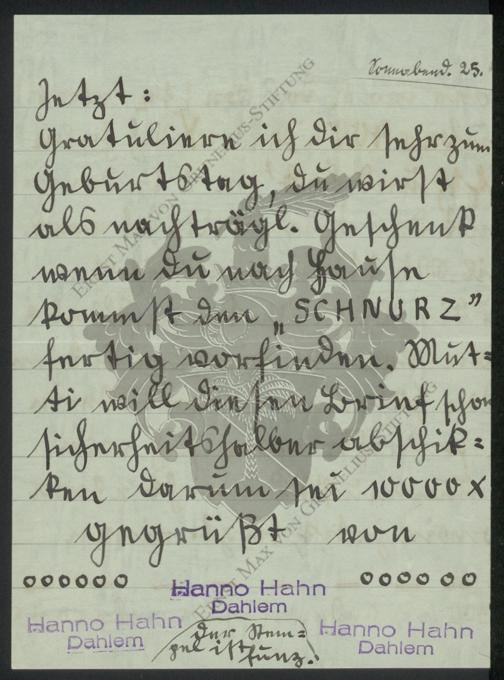 Sonnabend. 25.
Jetzt:
Gratuliere ich dir sehr zum
Geburtstag, du wirst
als nachträgl. Geschenk
wenn du nach Hause
kommst den „SCHNURZ”
fertig vorfinden. Mut=
ti will diesen Brief schon
sicherheitshalber abschik=
ken darum sei 10000x
gegrüßt von
Hanno Hahn
Dahlem
Hanno Hahn
Dahlem
der Stem=
pel ist
Hanno Hahn
Dahlem
ERNST MAX VON GRUNELIUS-STIFTUNG
ERNST MAX VON GRUNELIUS-STIFTUNG